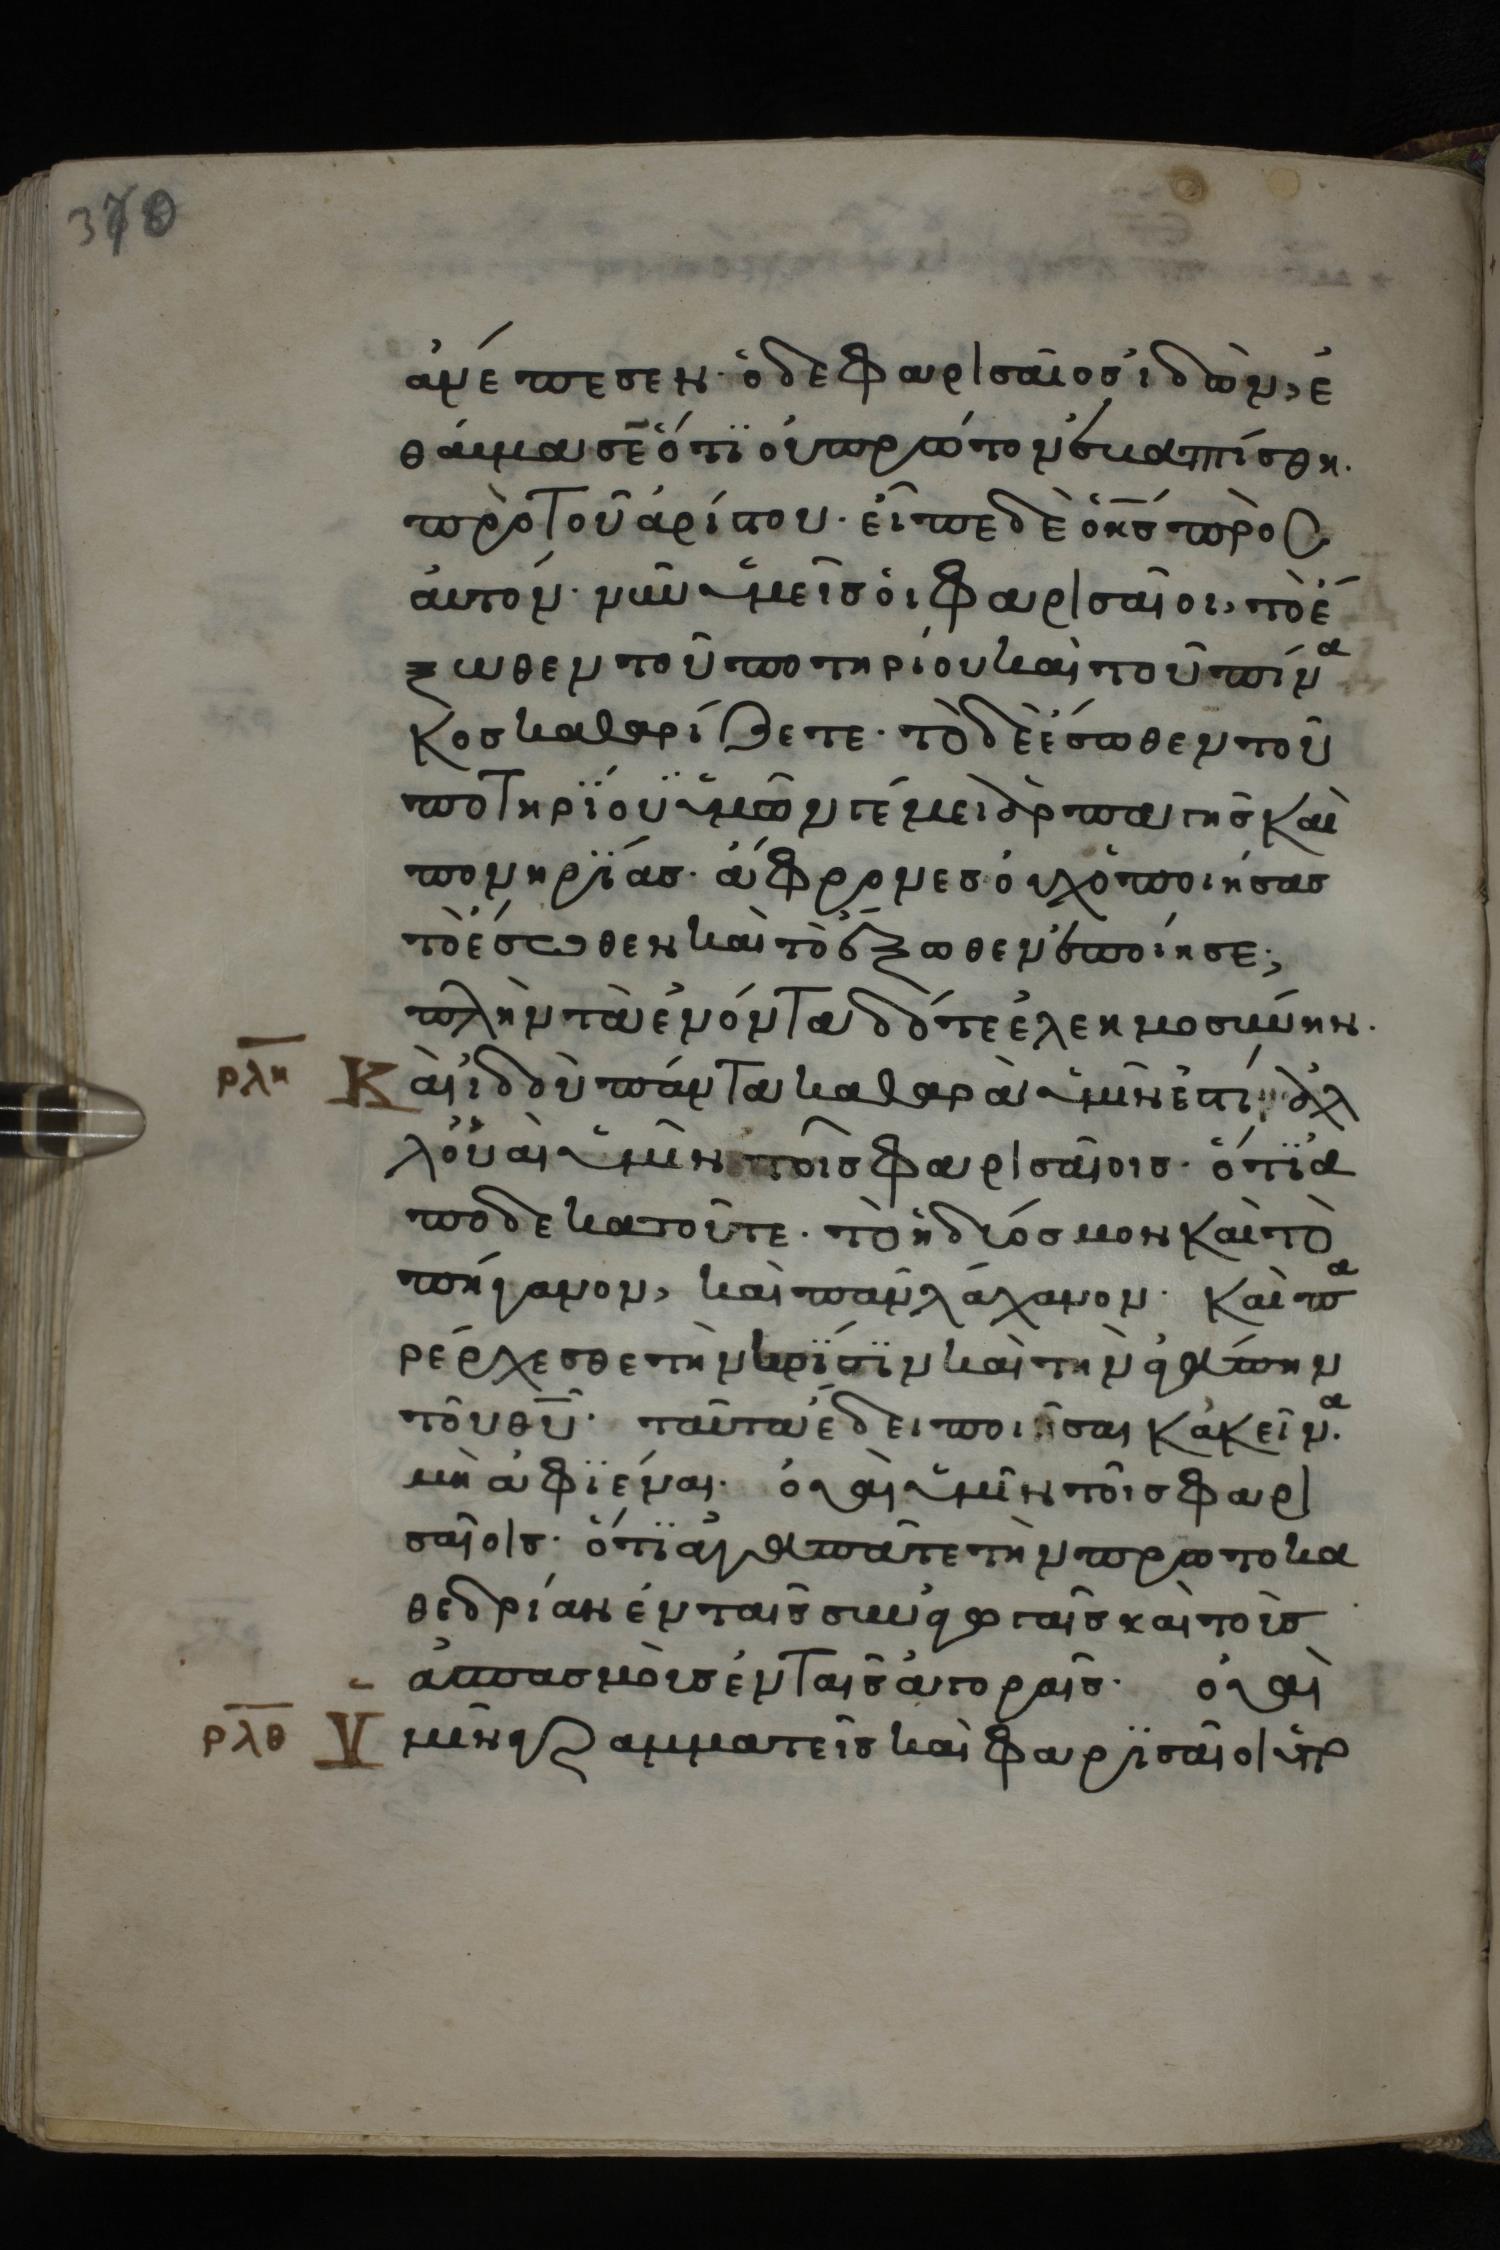 370
ἀνέπεσεν· ὁ δε φαρισαῖος ἰδὼν, ἐ
θάυμασεν ὅτϊ οὐ πρῶτον ἐβαπτίσθη·
πρὸ τοῦ ἀρίστου· εἶπε δὲ ὁ κ̅ς̅ πρὸς
ἀυτόν· νῦν ὑμεῖς ὁι φαρισαῖοι, τὸ ἔ
ξωθεν τοῦ ποτηρίου καὶ τοῦ πίνα
κος καθαρίζετε· τὸ δὲ ἔσωθεν τοῦ
ποτηρϊόυ ὑμῶν γέμει ἁρπαγῆς καὶ
πονηρϊάς· ἄφρονες ὀυχ ὁ ποιήσας
τὸ ἔσωθεν καὶ τὸ ἔξωθεν ἐποίησε;
πλὴν τὰ ἐνόντα δότε ἐλεημοσύνην·
ρλη Κ ὰι ἰδοὺ πάντα καθαρὰ ὑμῖν ἐστί· ἀλ
λ' ὀυὰι ὑμῖν τοῖς φαρισαῖοις· ὅτϊ ἀ
ποδεκατοῦτε· τὸ ἡδύοσμον καὶ τὸ
πήγανον, καὶ πᾶν λάχανον· καὶ πα
ρέρχεσθε τὴν κρϊσϊν καὶ τὴν ἀγάπην
τοῦ θ̅υ̅· ταῦτα ἔδει ποιῆσαι κἀκεῖνα·
μὴ ἀφϊέναι· ὀυαὶ ὑμῖν τοῖς φαρι
σαῖοις· ὅτϊ ἀγαπᾶτε τὴν πρωτοκα
θεδρίαν ἐν ταῖς συναγωγαῖς καὶ τοὺς
ἀσπασμοὺς ἐν ταῖς ἀγοραῖς· ὀυαὶ
ρλθ Υ μῖν γραμματεῖς καὶ φαρϊσαῖοι ὑπο